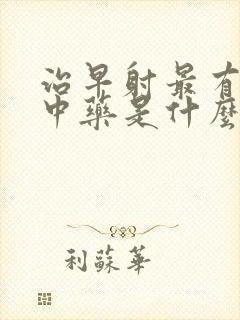 治早射最有
中藥是什麼
利蘇華